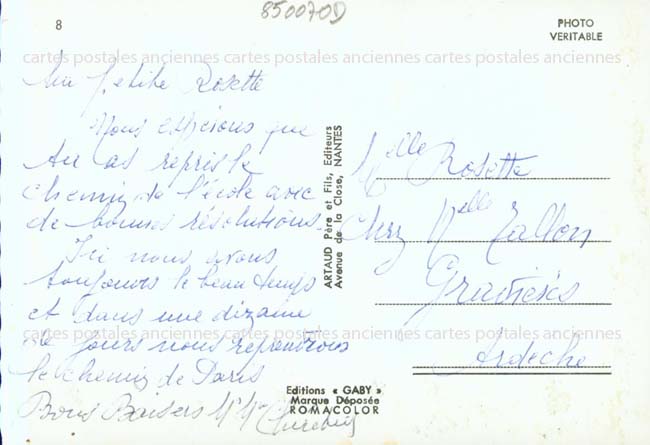 850070D
8
PHOTO
VERITABLE
cartes postales anciennes cartes postales anciennes cartes postales anciennes
Petite Rosette
Nous espérons que
tu as repris le
chemin de l'école avec
de bonnes résolutions.
Ici nous avons
toujours le beau temps
et dans une dizaine
cartes postales anciennes cartes postales anciennes cartes postales anciennes
de jours nous reprendrons
le chemin de Paris
Bons Baisers
ARTAUD Père et Fils, Editeurs
Avenue de la Close, NANTES
Melle Rosette
Chez Melle Tallon
Ardèche
Editions « GABY »
Marque Déposée
ROMACOLOR